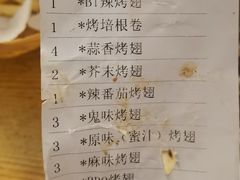 1 *BT辣烤翅
1 *烤培根卷
4 *蒜香烤翅
2 *芥末烤翅
1 *辣番茄烤翅
3 *鬼味烤翅
3 *原味（蜜汁）烤翅
3 *麻味烤翅
*BBQ烤翅